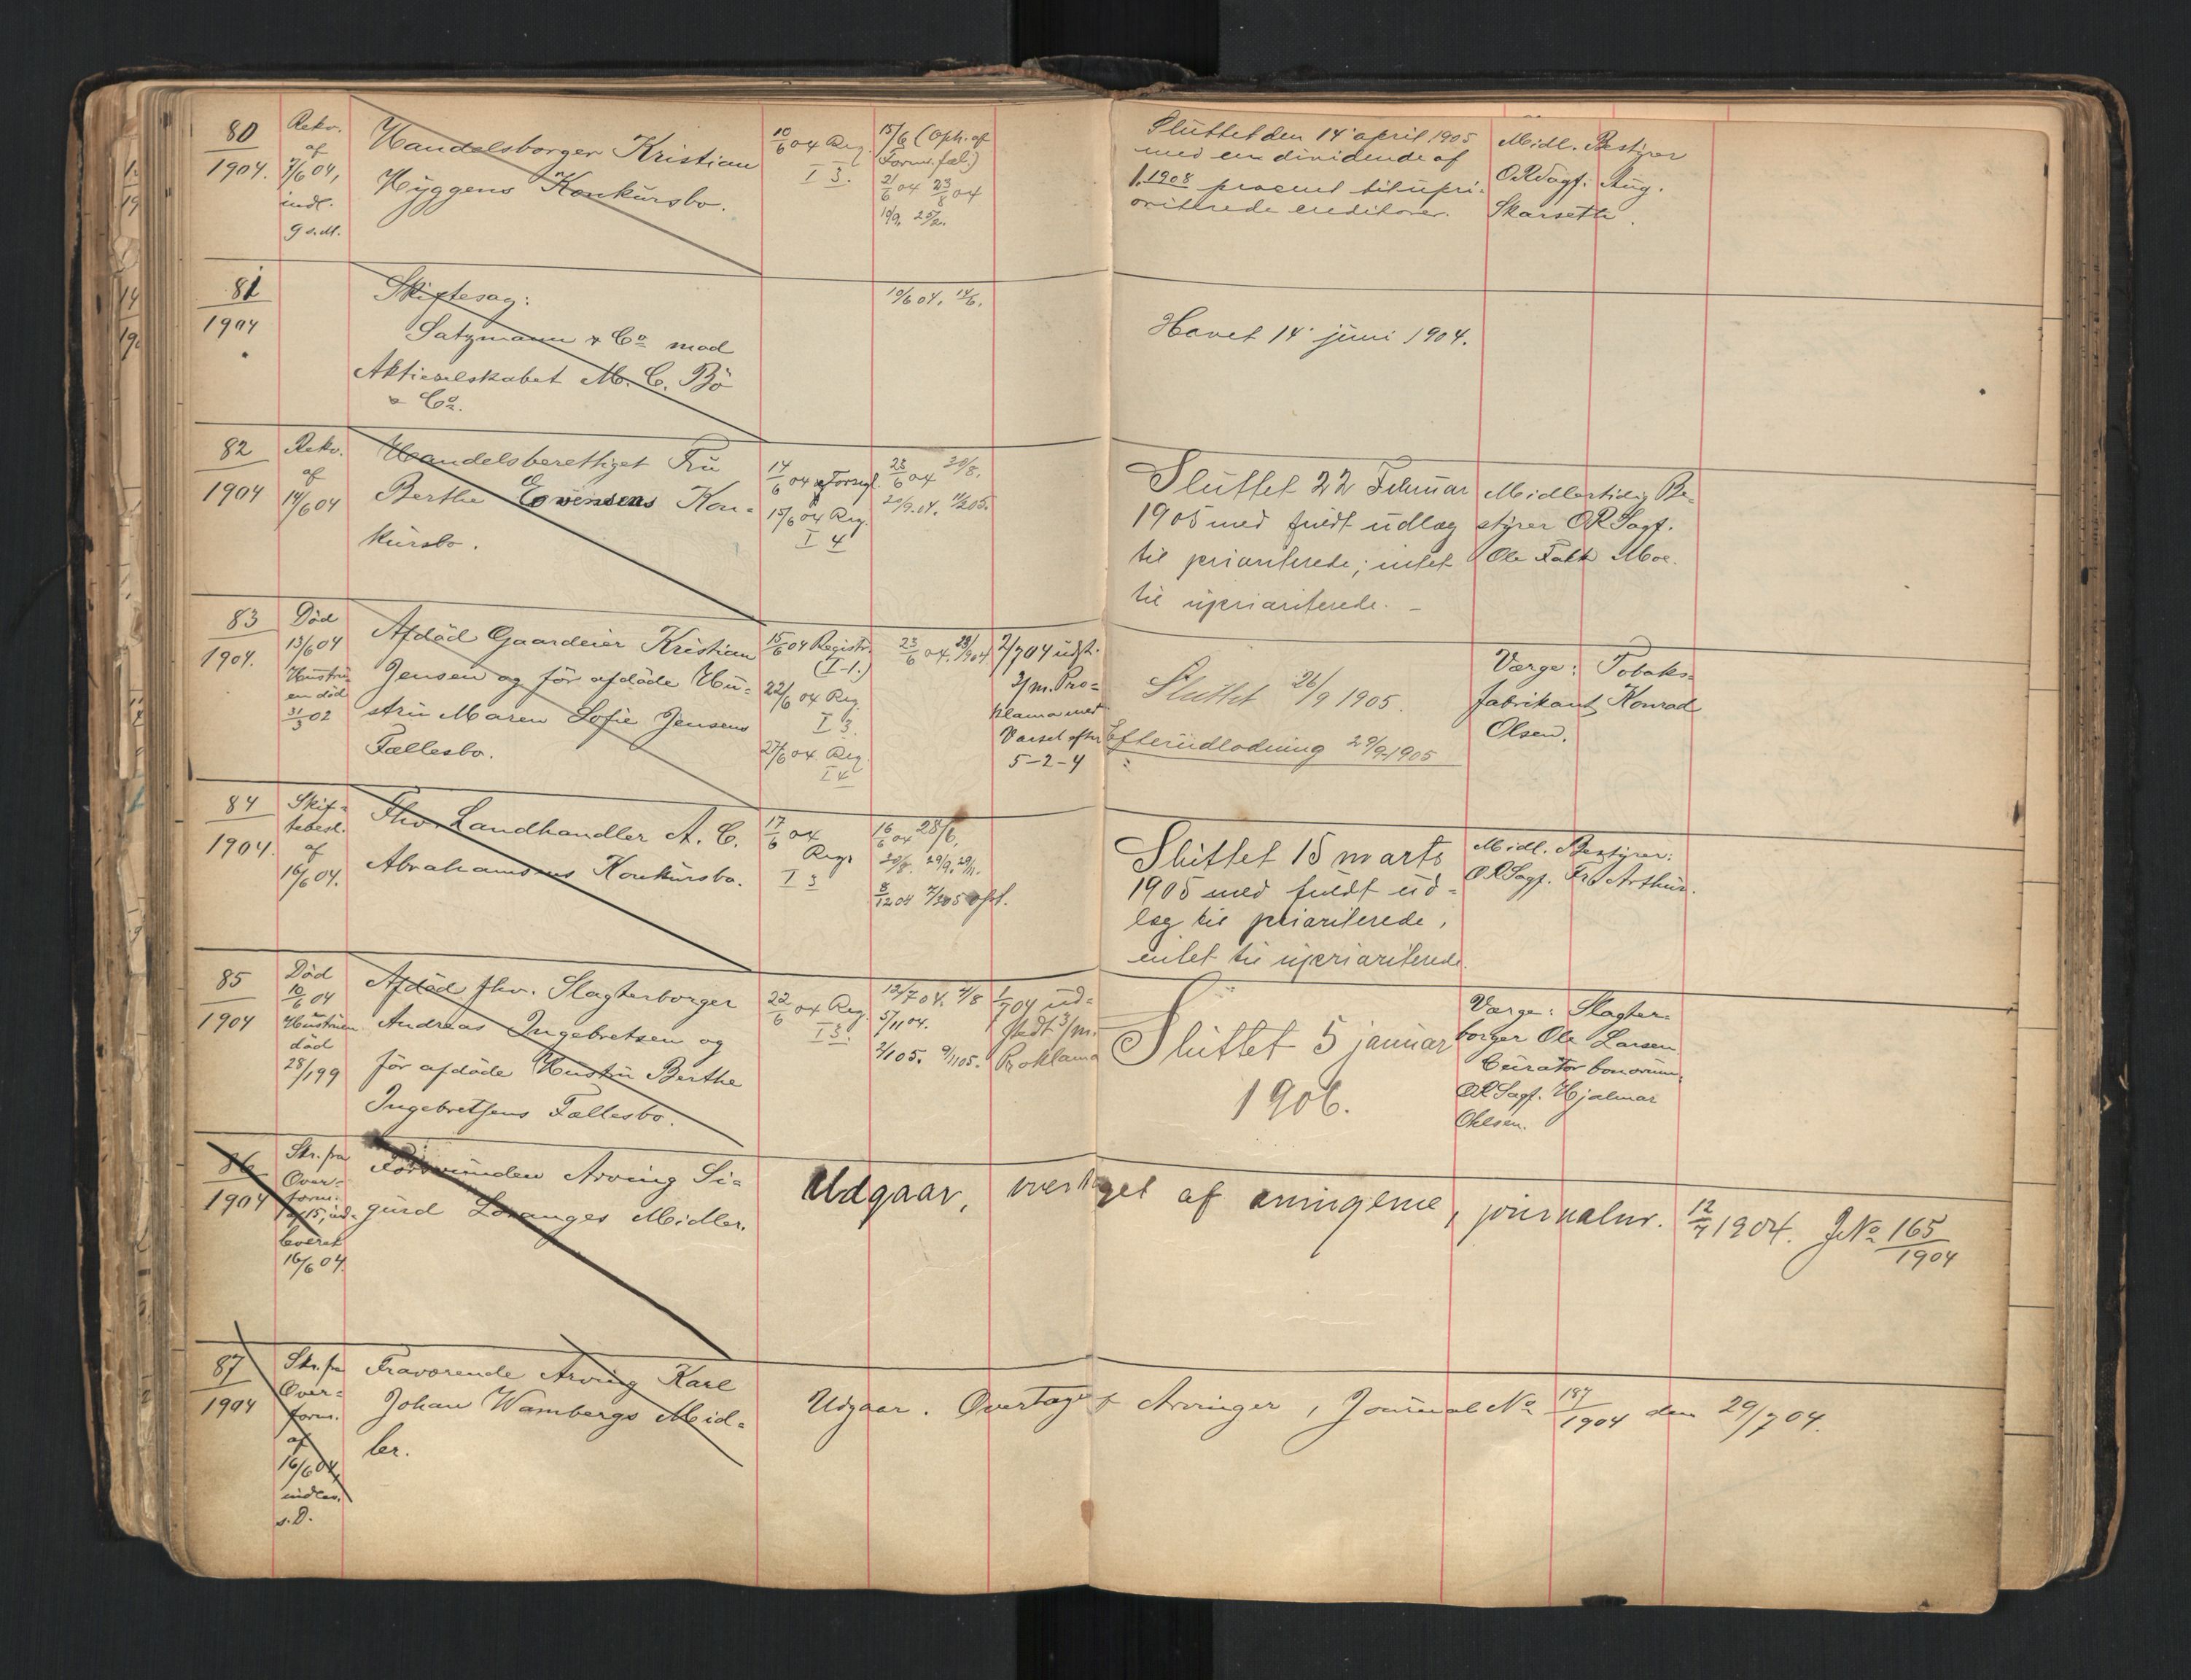 80
1904.
Rekv.
af
7/6 04,
indl.
9 s. M.
Handelsborger Kristian
Hyggens Konkursbo.
10/6 04 Reg.
I 3.
15/6 (Oph. af
Form. fæl.)
21/6 04 23/8 04
19/9. 25/2.
Sluttet den 14 april 1905
med en dividende af
1,1908 procent til upri-
oriterede creditorer.
Midl. Bestyrer
ORSagf. Aug.
Skarseth.
81
1904
Skiftesag:
Satzmann & Co mod
Aktieselskabet M. C. Bö
& Co.
10/6 04. 14/6.
Hævet 14 juni 1904.
82
1904
Rekv.
af
14/6 04
Handelsberettiget Fru
Berthe Evensens Kon-
kursbo.
14/6 04 Forsegl.
15/6 04 Reg.
I 4
23/6 04 30/8.
20/9.04. 11/2 05.
Sluttet 22 Februar
1905 med fuldt udlæg
til prioriterede; intet
til uprioriterede. -
Midlertidig Be-
styrer ORSagf.
Ole Falk Moe.
83
1904.
Död
13/6 04
Hustru-
en död
31/3 02
Afdöd Gaardeier Kristian
Jensen og för afdöde Hu-
stru Maren Sofie Jensens
Fællesbo.
15/6 04 Registr.
(I-1.)
22/6 04 Reg.
I 3.
27/6 04 Reg.
I 4
23/6 04. 28/9 04
2/7 04 udst.
3/m. Pro-
klama med
Varsel efter
5-2-4
Sluttet 26/9 1905.
Efterudlodning 29/9 1905
Værge: Tobaks-
fabrikant Konrad
Olsen.
84
1904.
Skif-
tebesl.
af
16/6 04.
Fhv. Landhandler A. C.
Abrahamsens Konkursbo.
17/6 04
Reg.
I 3
16/6 04 28/6.
30/8. 29/9. 29/11.
8/12 04 7/3 05
Sluttet 15 marts
1905 med fuldt ud-
læg til prioriterede,
intet til uprioriterede.
Midl. Bestyrer:
ORSagf. Fr. Arthur.
85
1904
Död
10/6 04
Hustruen
död
28/1 99
Afdöd fhv. Slagterborger
Andreas Ingebretsen og
för afdöde Hustru Berthe
Ingebretsens Fællesbo.
22/6 04 Reg.
I 3.
12/7 04. 4/8
5/11 04.
2/1 05. 9/11 05.
1/7 04 ud-
stedt 3/m.
Proklama
Sluttet 5 januar
1906.
Værge: Slagter-
borger Ole Larsen.
Curator bonorum:
ORSagf. Hjalmar
Ohlsen.
86
1904
Skr. fra
Over-
form.
af 15, ind-
leveret
16/6 04.
Forsvunden Arving Si-
gurd Loranges Midler.
Udgaar, overtaget af arvingerne, journalnr. 12/7 1904. JNo 165/1904
87
1904
Skr. fra
Over-
form.
af
16/6 04,
indlev.
s. D.
Fraværende Arving Karl
Johan Wambergs Mid-
ler.
Udgaar. Overtaget af Arvinger, Journal No 187/1904 den 29/7 04.